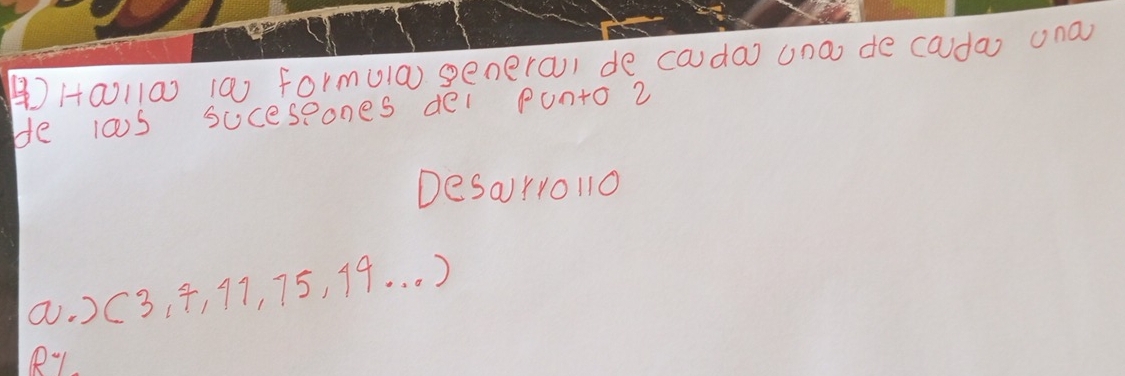 4) Halla la formula general de cada una de cada una
de las sucesiones del punto 2
Desarrollo
a.) (3, 7, 11, 15, 19...)
R%